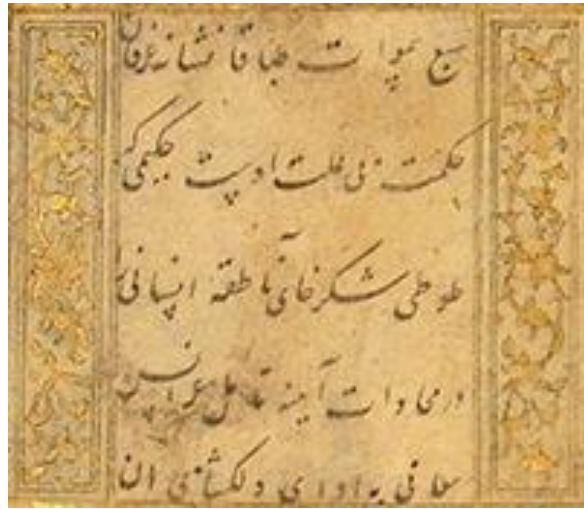 سبع سموات طباقا نشانه عرفان
حکمت بی علت اوست حکیمی که
طوطی شکرخای ناطقه انسانی را
در محاذات آینه تامل عرایس
معانی به ادای دلکشای ان